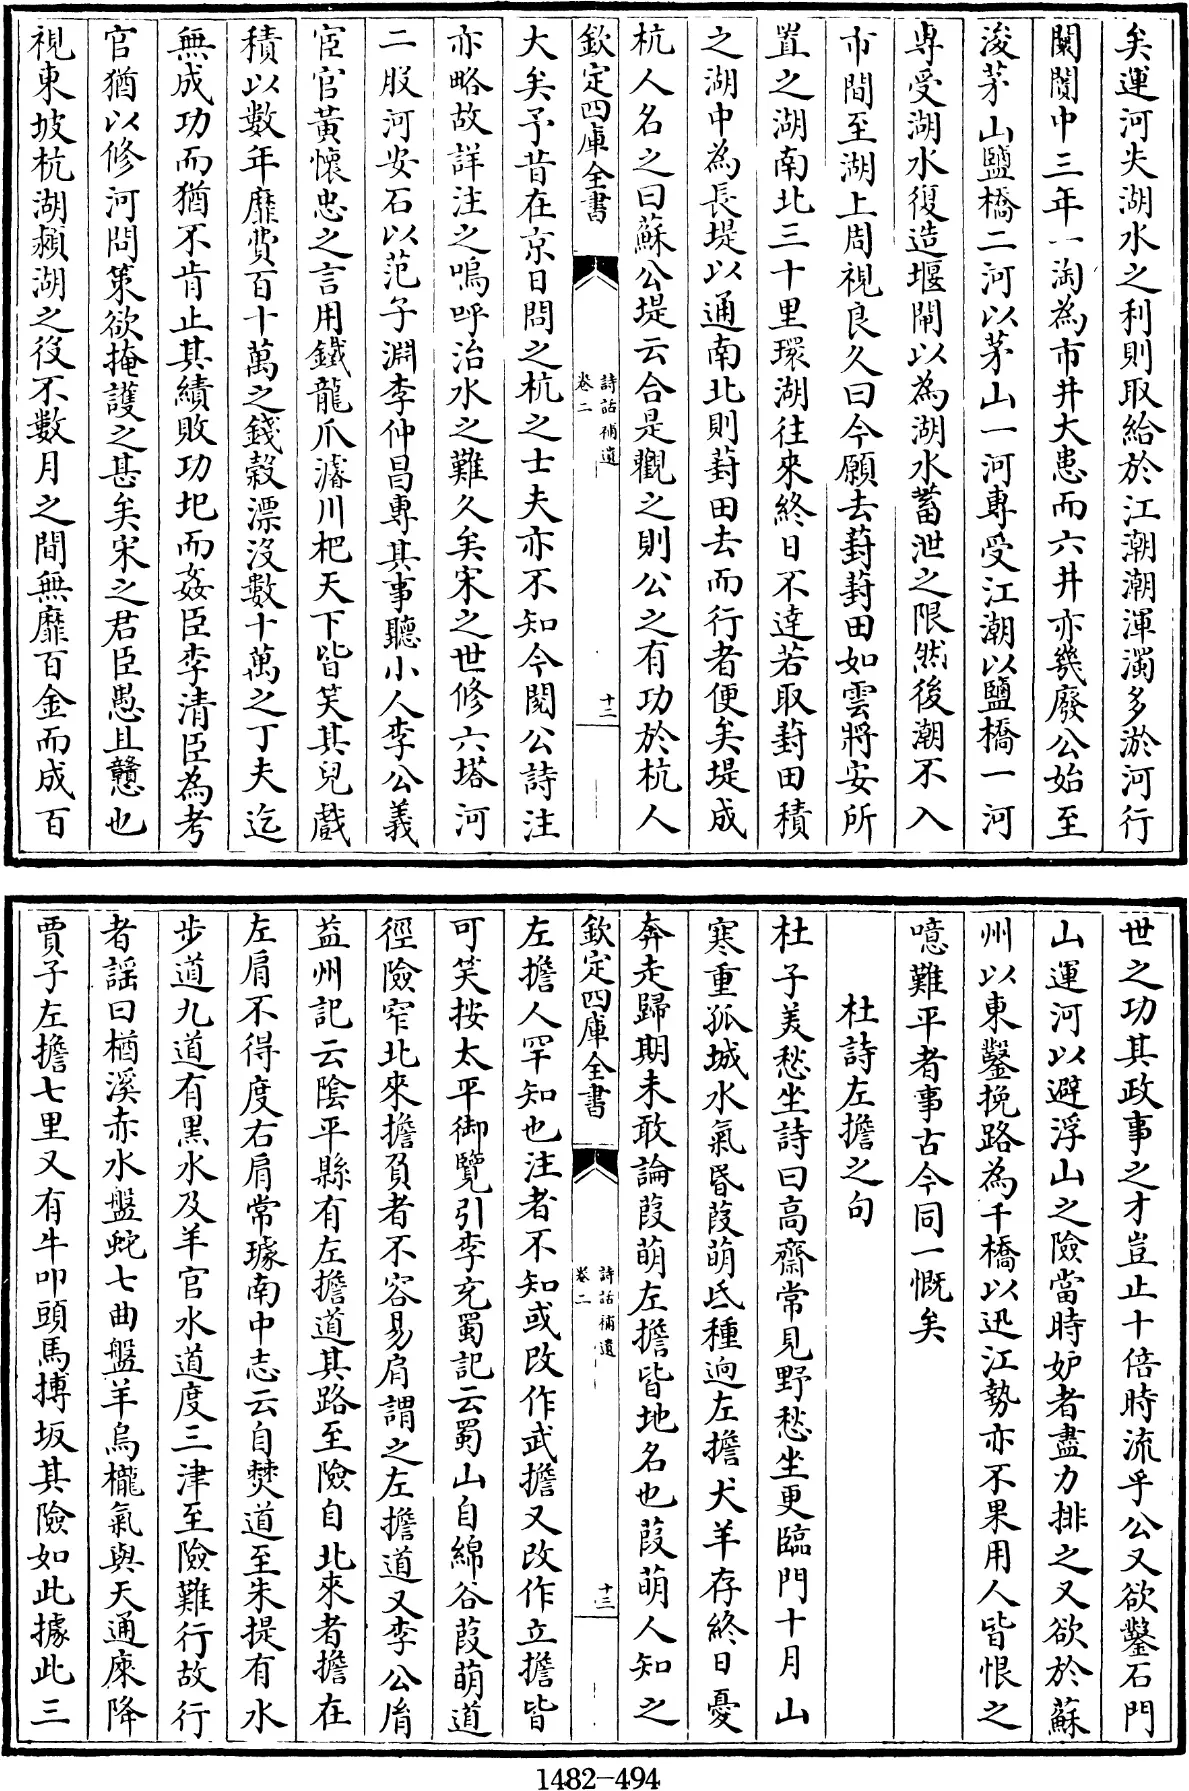 矣運河失湖水之利則取給於江潮潮渾濁多淤河行
闤闠中三年一淘為市井大患而六井亦幾廢公始至
浚茅山鹽橋二河以茅山一河專受江潮以鹽橋一河
專受湖水復造堰閘以為湖水蓄泄之限然後潮不入
市間至湖上周視良久曰今願去葑葑田如雲將安所
置之湖南北三十里環湖往來終日不達若取葑田積
之湖中為長堤以通南北則葑田去而行者便矣堤成
杭人名之曰蘇公堤云合是觀之則公之有功於杭人
欽定四庫全書
詩話補遺
卷二
十二
大矣予昔在京日問之杭之士夫亦不知今閱公詩注
亦略故詳注之嗚呼治水之難久矣宋之世修六塔河
二股河安石以范子淵李仲昌專其事聽小人李公義
宦官黃懷忠之言用鐵龍爪濬川杷天下皆笑其兒戲
積以數年靡費百十萬之錢穀漂沒數十萬之丁夫迄
無成功而猶不肯止其績敗功圮而姦臣李清臣為考
官猶以修河問策欲掩護之甚矣宋之君臣愚且戇也
視東坡杭湖潁湖之役不數月之間無靡百金而成百
世之功其政事之才豈止十倍時流乎公又欲鑿石門
山運河以避浮山之險當時妒者盡力排之又欲於蘇
州以東鑿挽路為千橋以迅江勢亦不果用人皆恨之
噫難平者事古今同一慨矣
杜詩左擔之句
杜子美愁坐詩曰高齋常見野愁坐更臨門十月山
寒重孤城水氣昏葭萌氐種迥左擔犬羊存終日憂
奔走歸期未敢論葭萌左擔皆地名也葭萌人知之
欽定四庫全書
詩話補遺
卷二
十三
左擔人罕知也注者不知或改作武擔又改作立擔皆
可笑按太平御覽引李充蜀記云蜀山自綿谷葭萌道
徑險窄北來擔負者不容易肩謂之左擔道又李公胤
益州記云陰平縣有左擔道其路至險自北來者擔在
左肩不得度右肩常璩南中志云自僰道至朱提有水
步道九道有黑水及羊官水道度三津至險難行故行
者謠曰楢溪赤水盤蛇七曲盤羊烏櫳氣與天通庲降
賈子左擔七里又有牛叩頭馬搏坂其險如此據此三
1482-494